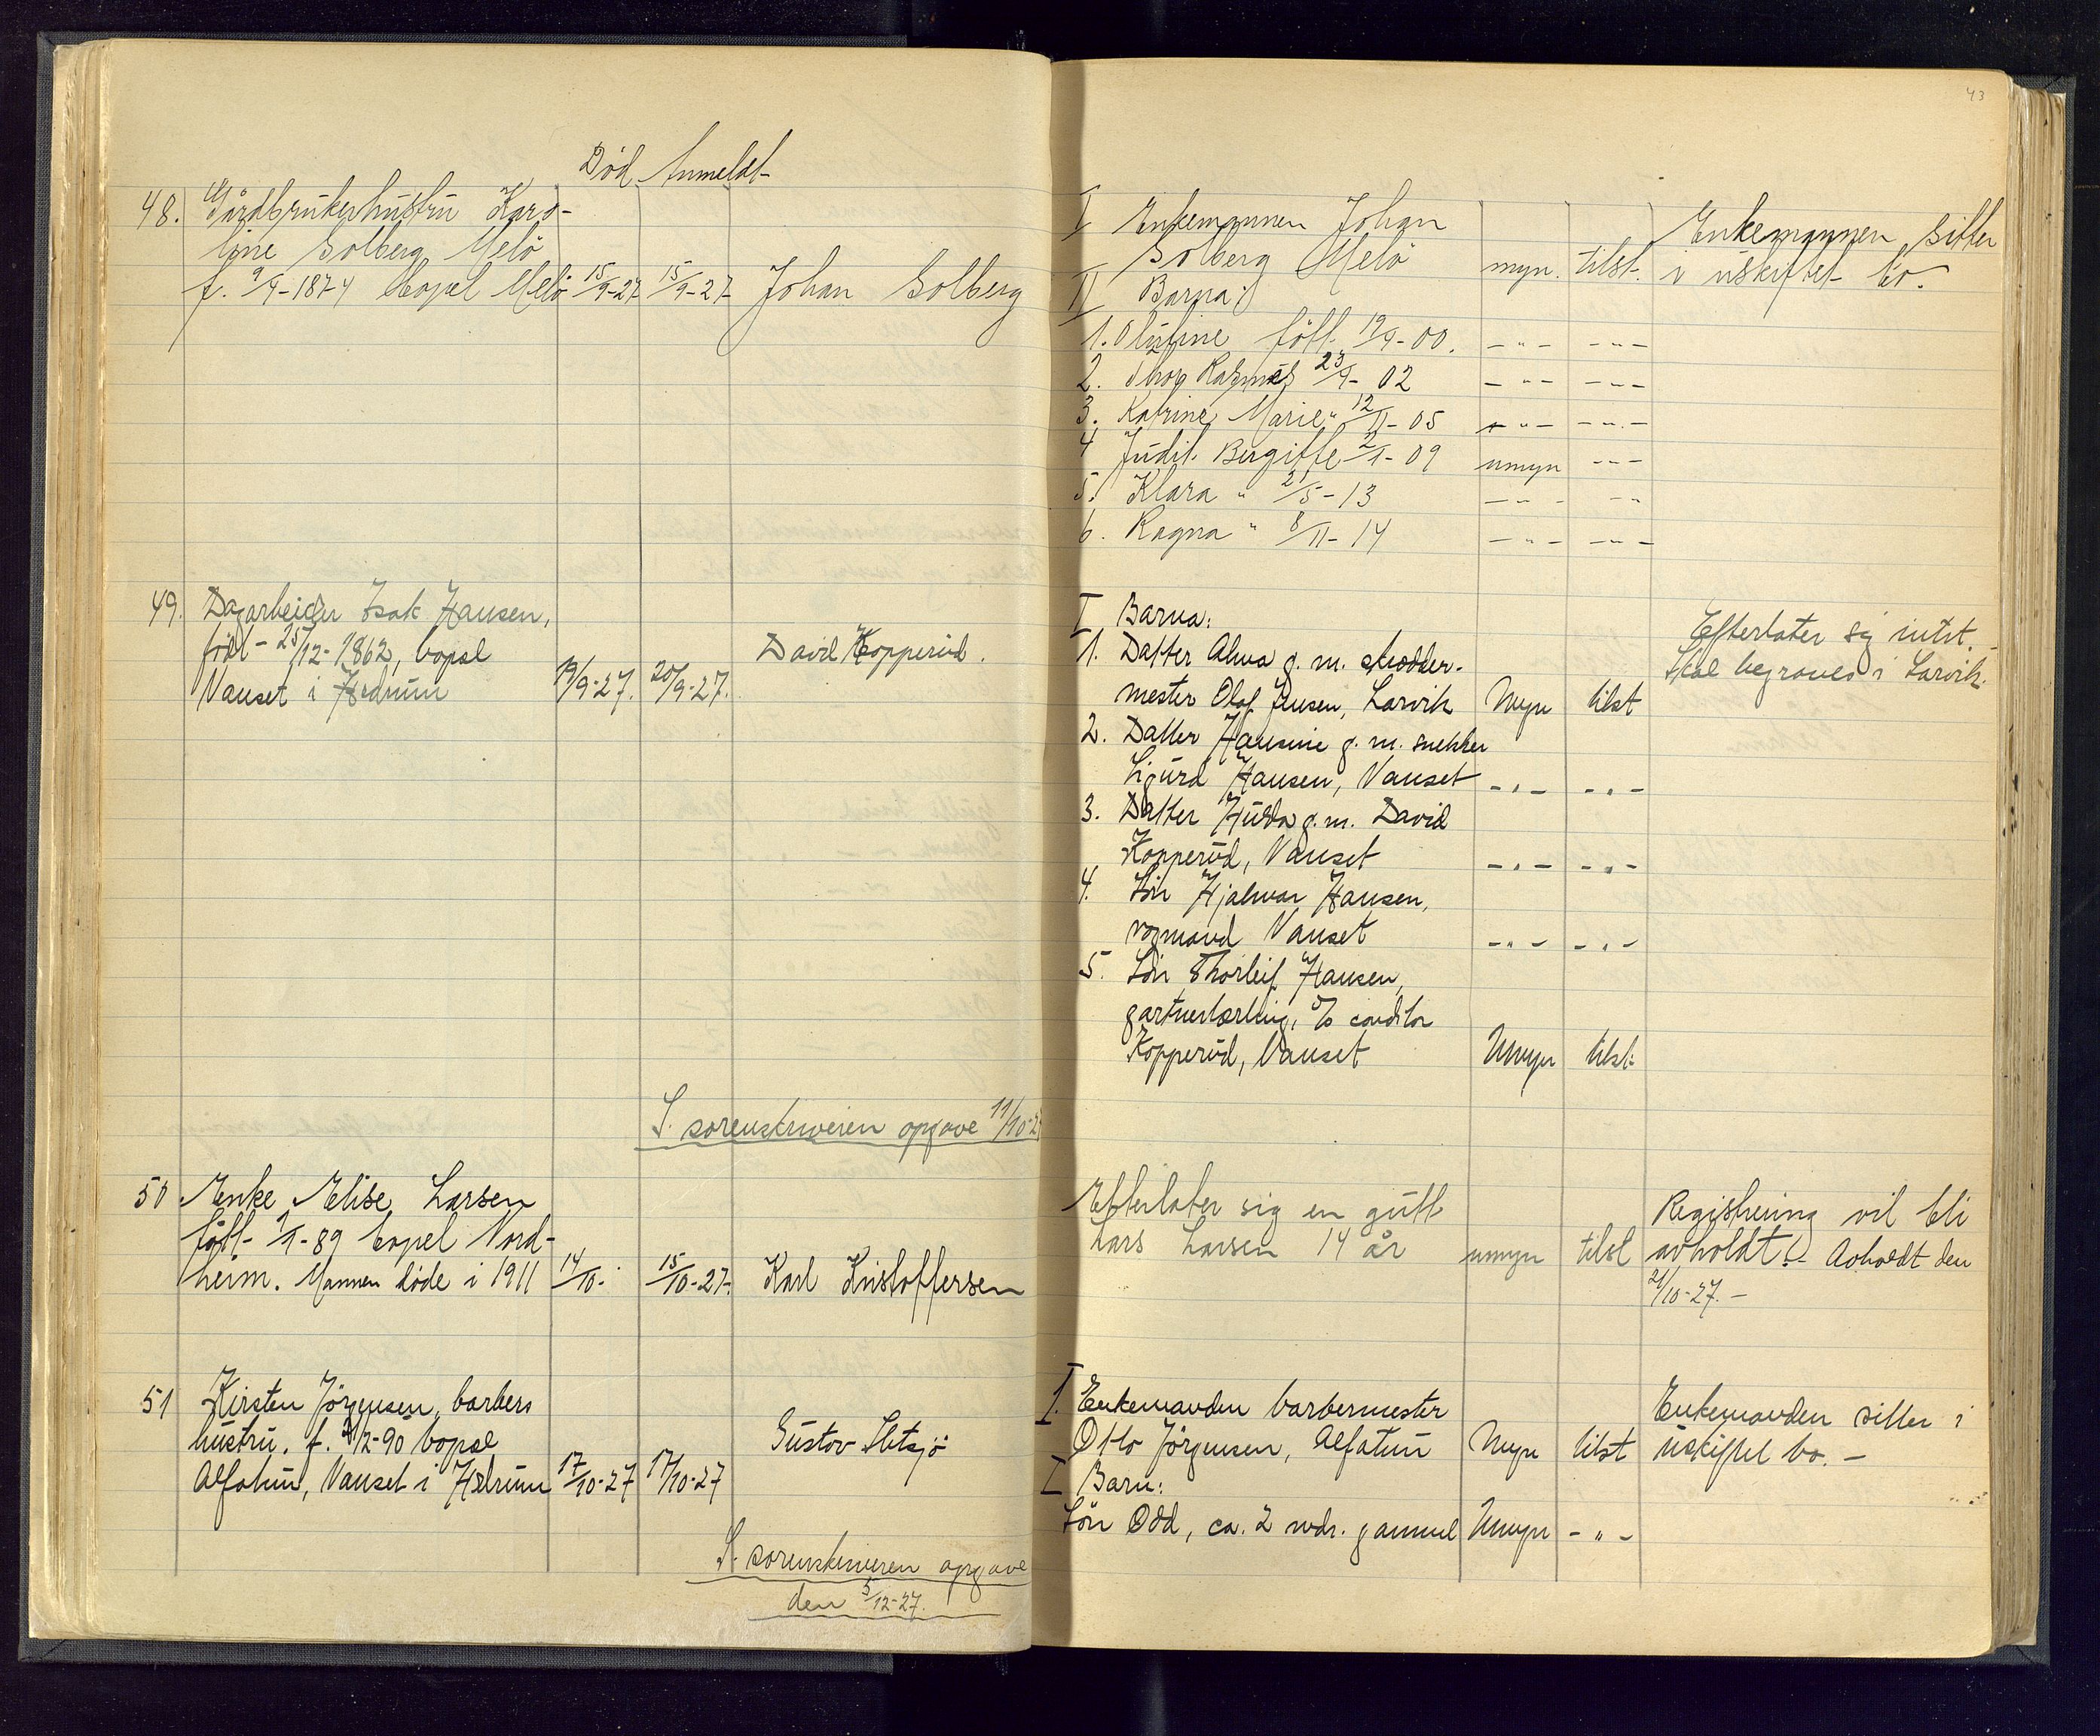 43
Död Anmeldt
48. Gårdbrukerhustru Karo-
line Solberg Melö
f. 9/4-1874 bopel Melö 15/9-27 15/9-27 Johan Solberg
49. Dagarbeider Isak Hansen,
född 25/12-1862, bopel
Vanset i Hedrum 19/9-27. 20/9-27. David Kopperud.
S. sorenskriveren opgave 11/10-2
50 Enke Elise Larsen
född 1/1-89 bopel Nord-
heim. Mannen döde i 1911 14/10. 15/10-27. Karl Kristoffersen
51 Kirsten Jörgensen, barbers
hustru. f. /2-90 bopel
Alfatun, Vanset i Hedrum 17/10-27 17/10-27 Gustav
S. sorenskriveren opgave
den 5/12-27.
I Enkemannen Johan
Solberg Melö myn. tilst.
Enkemannen sitter
i uskiftet bo.
II Barna:
1. Olufine född 19/4-00. -"- -"-
2. Thor Rasmus 23/4-02 -"- -"-
3. Katrine Marie " 12/11-05 -"- -"-
4 Judit Bergitte 2/1-09 umyn -"-
5. Klara " 21/5-13 -"- -"-
6. Ragna " 8/11-14 -"- -"-
I Barna:
1. Datter Alma g. m. skrædder-
mester Olaf Jensen, Larvik Myn tilst
Efterlater sig intet.
Skal begraves i Larvik.
2. Datter Hansine g. m. snekker
Sigurd Hansen, Vanset -"- -"-
3. Datter Hulda g. m. David
Kopperud, Vanset -"- -"-
4. Sön Hjalmar Hansen,
vognmand Vanset -"- -"-
5. Sön Thorleif Hansen,
gartnerlærling, c/o conditor
Kopperud, Vanset Umyn tilst.
Efterlater sig en gutt
Lars Larsen 14 år umyn tilst
Registrering vil bli
avholdt.- Avholdt den
21/10-27.-
I. Enkemanden barbermester
Otto Jörgensen, Alfatun Myn tilst
Enkemanden sitter i
uskiftet bo.-
I Barn:
Sön Odd, ca. 2 mdr. gammel Umyn -"-